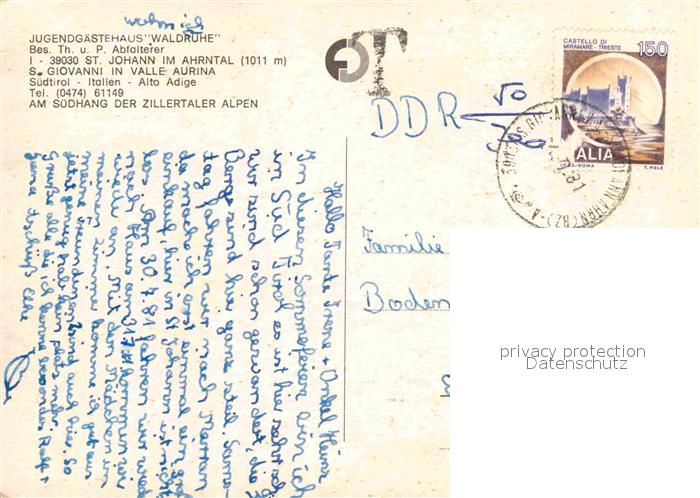 wohn ich
JUGENDGÄSTEHAUS "WALDRUHE"
Bes. Th. u. P. Abfalterer
I - 39030 ST. JOHANN IM AHRNTAL (1011 m)
S. GIOVANNI IN VALLE AURINA
Südtirol - Italien - Alto Adige
Tel. (0474) 61149
AM SÜDHANG DER ZILLERTALER ALPEN
T
CASTELLO DI
MIRAMARE - TRIESTE
150
ITALIA
T. MELE
DDR
50
Familie
Boden
privacy protection
Datenschutz
Hallo Tante Irene + Onkel Heinz
In diesem Sommerferien bin ich
in Süd Tirol es ist hier sehr sch
wir sind schon gewandert, die
Berge sind hier ganz steil. Sams-
tag fahren wir nach Meran
da mache ich erst einmal ein
einkauf, hier in St Johann ist nicht
los. Am 30.7.81 fahren wir wied
nach Haus am 31.7 kommen wir
wieder an. Mit den Mädchen in
meinem Zimmer komme ich gut aus
meine Freundinnen sind auch hier. So
jetzt genug hab kein platz mehr.
Grüße alle die ich kenne besonders Ralf +
tschüß Elke